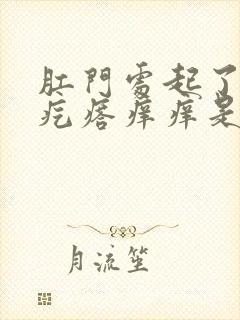 肛門處起了
疙瘩痒痒是
月流笙